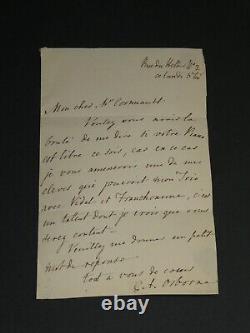 Rue du Helder No 2
ce lundi 5
Mon cher Mr
Voulez vous avoir la
bonté de me dire si votre Piano
est libre ce soir, car en ce cas
je vous amenerois une de mes
eleves qui joueroit mon Trio
avec Vidal et Franchomme, c'est
un talent dont je crois que vous
serez content.
Veuillez me donner un petit
mot de reponse
tout a vous de coeur
G.A. Osborne